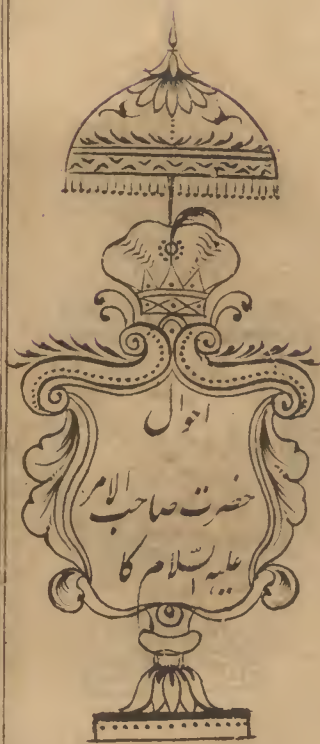 احوال
حضرت صاحب الامر
علیہ السّلام کا